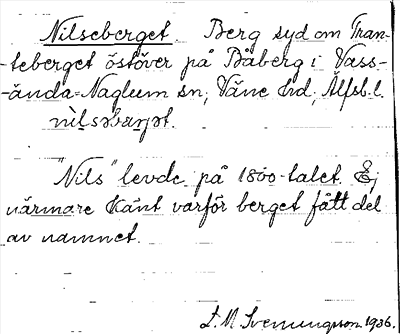 Nilseberget. Berg syd om Tran-
-teberget östöver på Båberg i Vass-
-ända-Naglum sn; Väne hd, Älfsb. l.
"Nils" levde på 1800-talet. Ej
närmare känt varför berget fått det
av namnet.
L. M Svenungsson 1936.